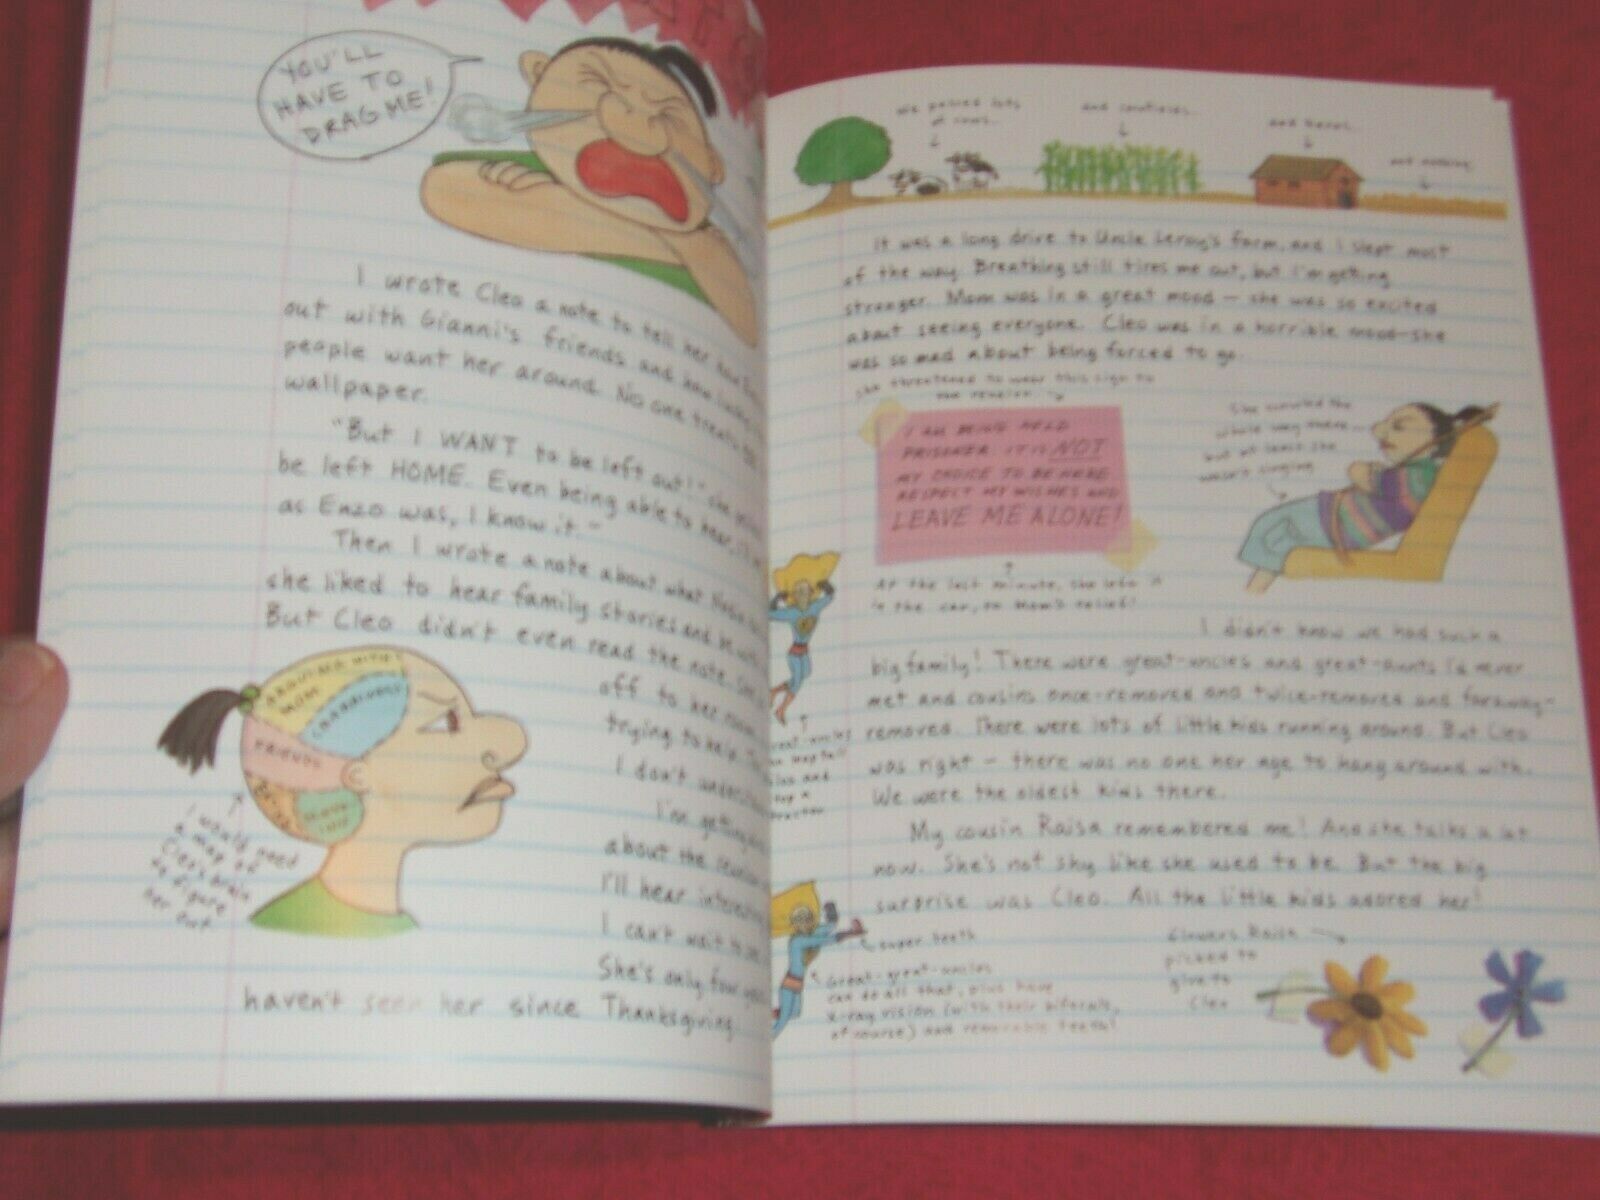 YOU'LL
HAVE TO
DRAG ME!
I wrote Cleo a note to tell her how
out with Gianni's friends and how
people want her around. No one treats
wallpaper.
"But I WANT to be left out!" she
be left HOME. Even being able to hear, I'll
as Enzo was, I know it."
Then I wrote a note about what
she liked to hear family stories and be with
But Cleo didn't even read the note. She
off to her room
trying to help.
I don't understand
I'm getting
about the reunion
I'll hear interesting
I can't wait to see
She's only four
haven't seen her since Thanksgiving.
ARGUING WITH
MOM
FRIENDS
I would need
a map of
Cleo's brain
to figure
her out
We passed lots
of cows...
and cornfields...
and barns...
and nothing
It was a long drive to Uncle Leroy's farm, and I slept most
of the way. Breathing still tires me out, but I'm getting
stronger. Mom was in a great mood — she was so excited
about seeing everyone. Cleo was in a horrible mood — she
was so mad about being forced to go.
She threatened to wear this sign to
the reunion
I AM BEING HELD
PRISONER. IT IS NOT
MY CHOICE TO BE HERE
RESPECT MY WISHES AND
LEAVE ME ALONE!
She scowled the
whole way there...
but at least she
wasn't singing
At the last minute, she left it
in the car, to Mom's relief!
I didn't know we had such a
big family! There were great-uncles and great-aunts I'd never
met and cousins once-removed and twice-removed and faraway-
removed. There were lots of little kids running around. But Cleo
was right — there was no one her age to hang around with.
We were the oldest kids there.
My cousin Raisa remembered me! And she talks a lot
now. She's not shy like she used to be. But the big
surprise was Cleo. All the little kids adored her!
super teeth
Great-great-uncles
can do all that, plus have
x-ray vision (with their bifocals,
of course) and removable teeth!
flowers Raisa
picked to
give to
Cleo